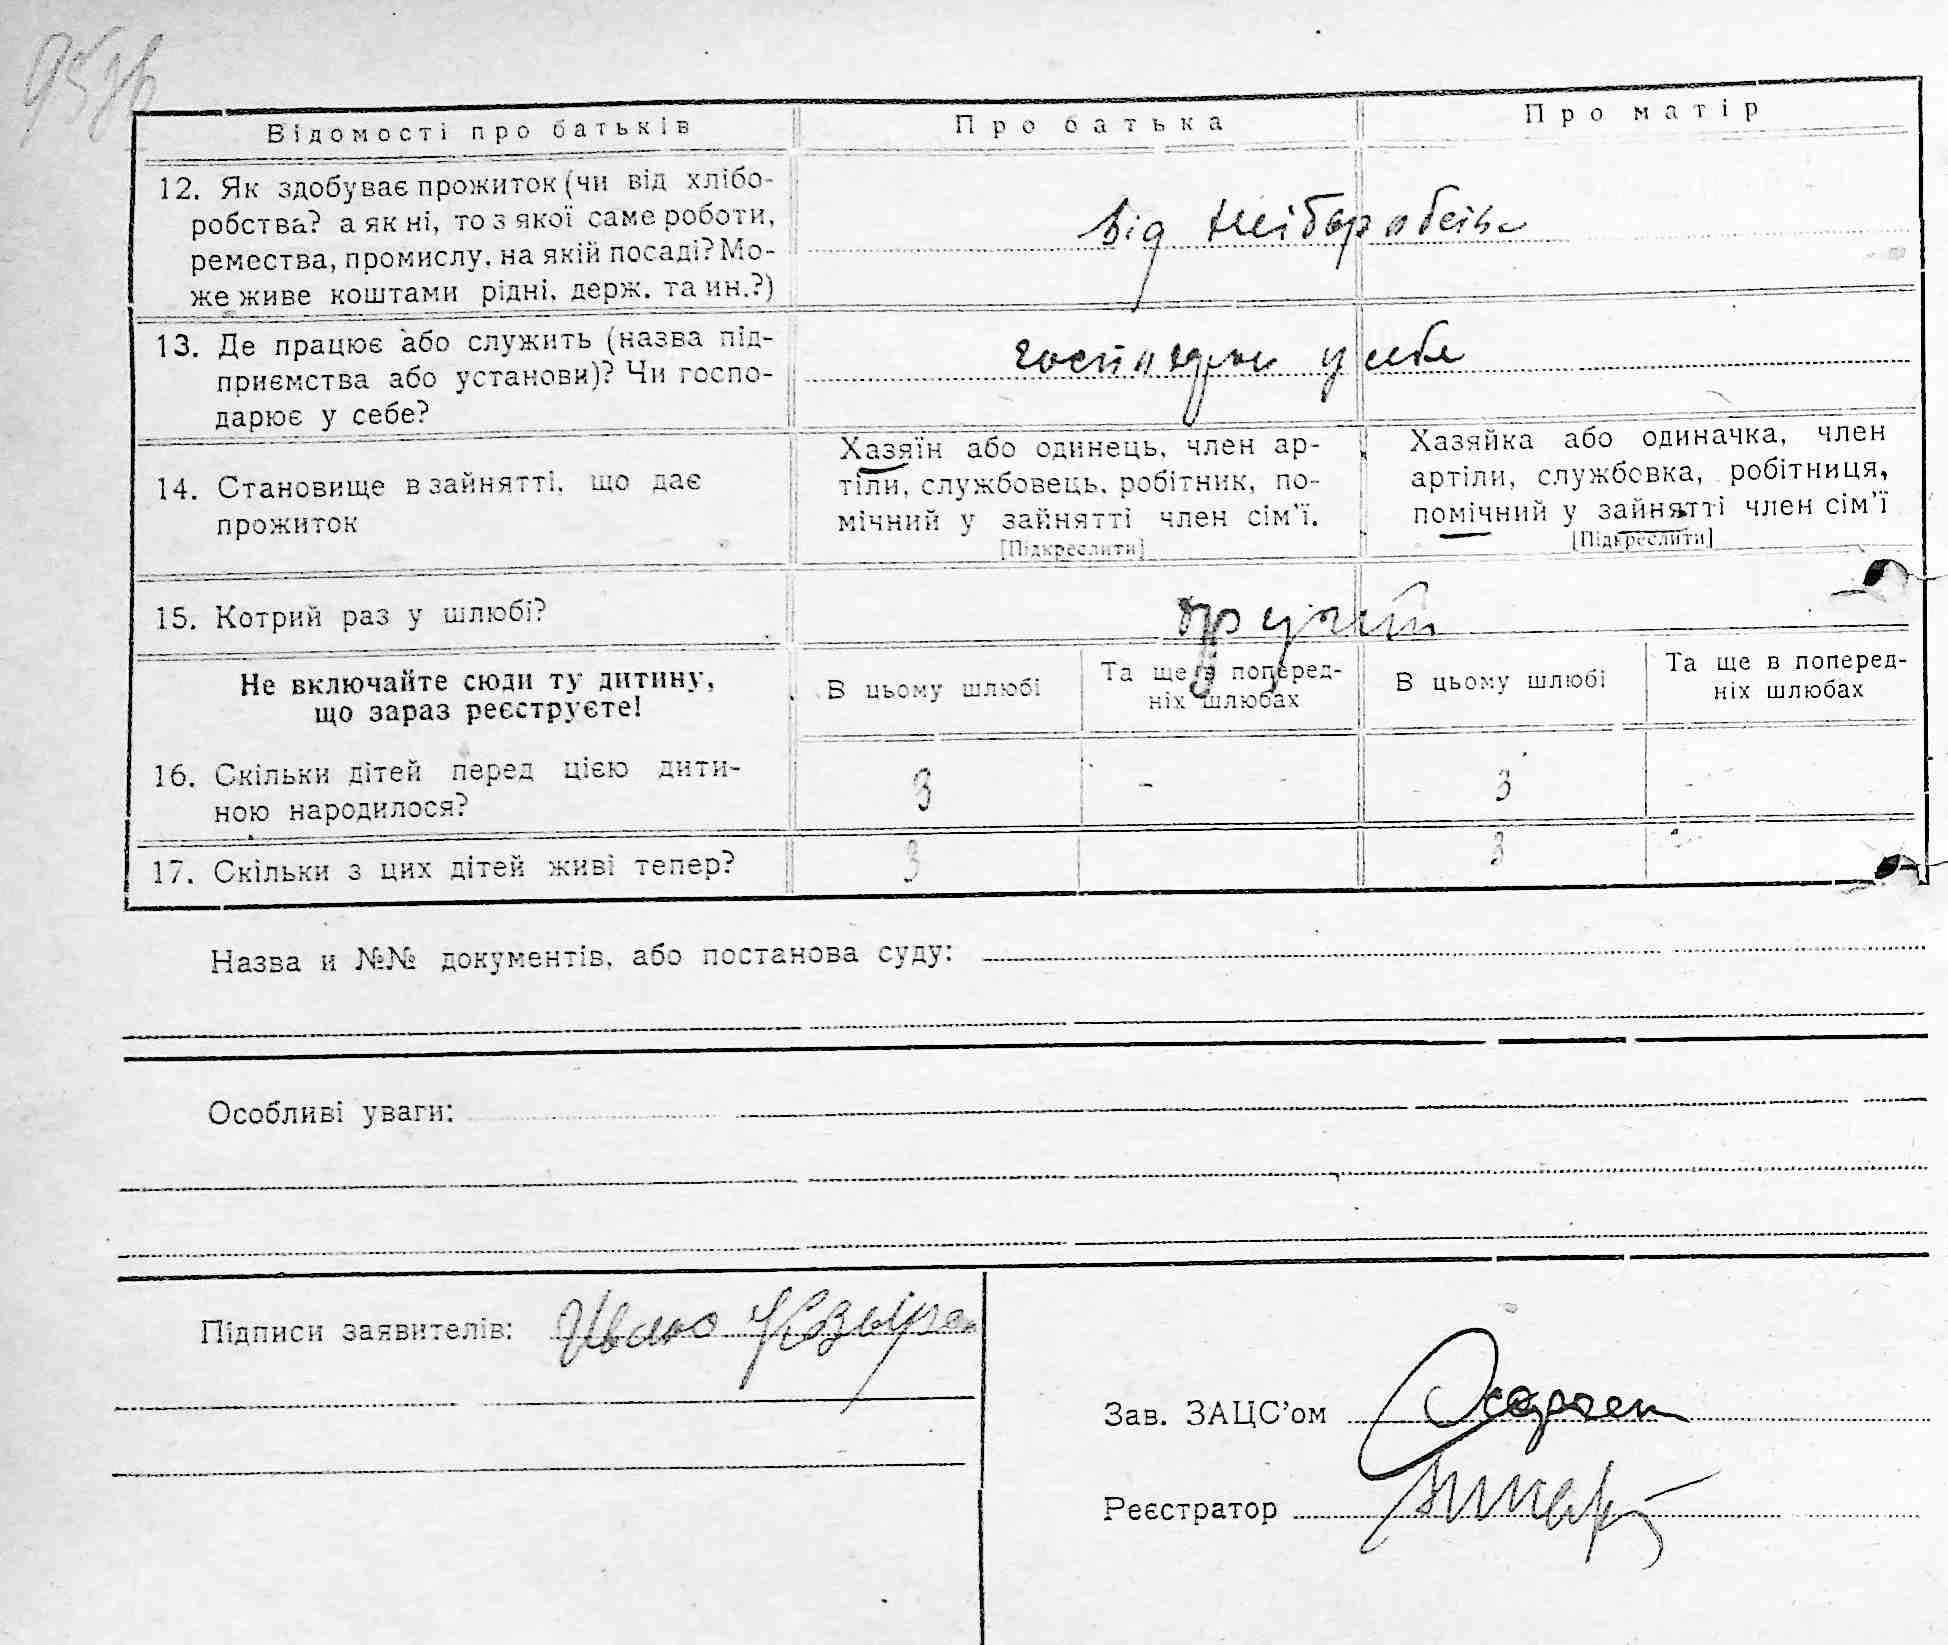 95 зв
Відомості про батьків
Про батька
Про матір
12. Як здобуває прожиток (чи від хлібо-
робства? а як ні, то з якої саме роботи,
ремества, промислу, на якій посаді? Мо-
же живе коштами рідні, держ. та ин.?)
від хліборобства
13. Де працює або служить (назва під-
приємства або установи)? Чи госпо-
дарює у себе?
у себе
14. Становище в зайнятті, що дає
прожиток
Хазяїн або одинець, член ар-
тіли, службовець, робітник, по-
мічний у зайнятті член сім'ї.
[Підкреслити]
Хазяйка або одиначка, член
артіли, службовка, робітниця,
помічний у зайнятті член сім'ї
[Підкреслити]
15. Котрий раз у шлюбі?
Не включайте сюди ту дитину,
що зараз реєструєте!
В цьому шлюбі
Та ще в поперед-
ніх шлюбах
В цьому шлюбі
Та ще в поперед-
ніх шлюбах
16. Скільки дітей перед цією дити-
ною народилося?
3 - 3 -
17. Скільки з цих дітей живі тепер?
3 3 -
Назва и №№ документів, або постанова суду:
Особливі уваги:
Підписи заявителів:
Зав. ЗАЦС'ом
Реєстратор